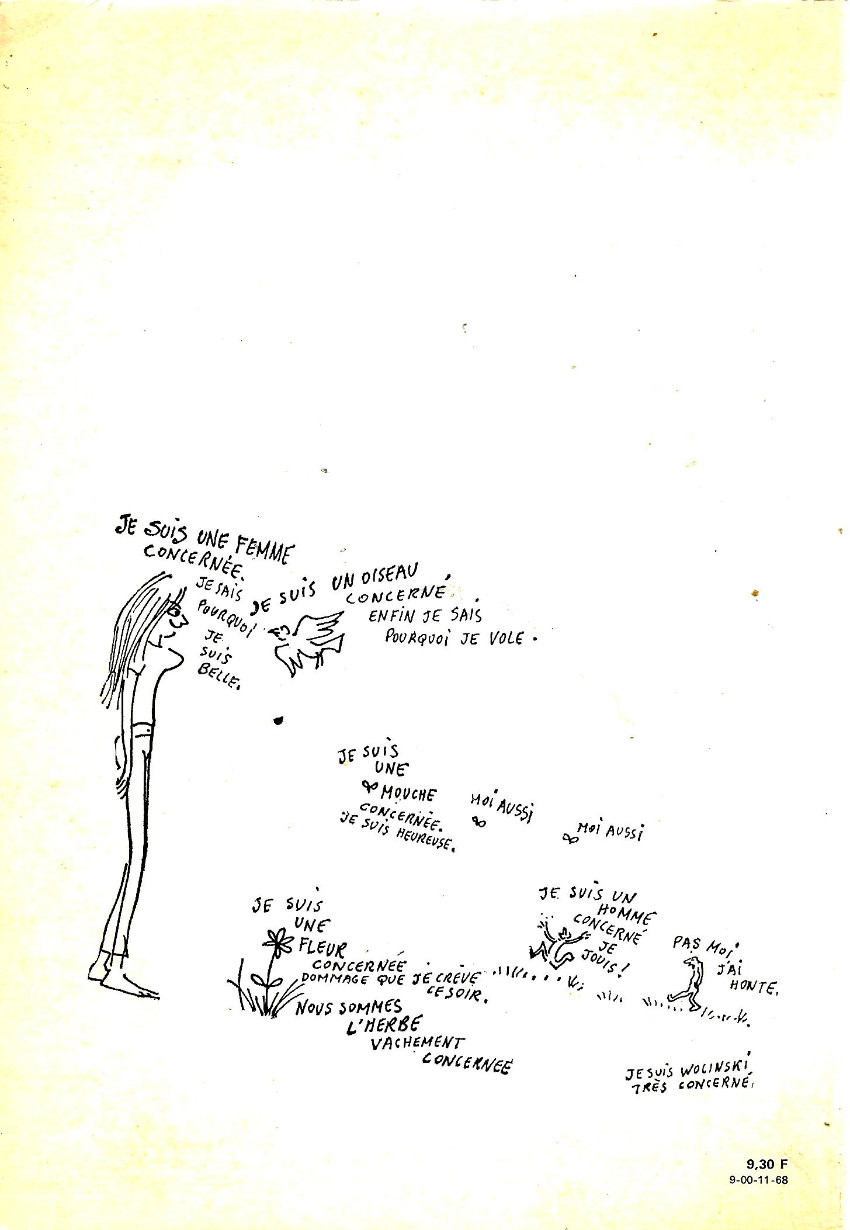 JE SUIS UNE FEMME
CONCERNÉE.
JE SAIS
POURQUOI
JE
SUIS
BELLE.
JE SUIS UN OISEAU
CONCERNÉ.
ENFIN JE SAIS
POURQUOI JE VOLE.
JE SUIS
UNE
MOUCHE
CONCERNÉE.
JE SUIS HEUREUSE.
MOI AUSSI
MOI AUSSI
JE SUIS
UNE
FLEUR
CONCERNÉE
DOMMAGE QUE JE CRÈVE
CE SOIR.
NOUS SOMMES
L'HERBE
VACHEMENT
CONCERNÉE
JE SUIS UN
HOMME
CONCERNÉ
JE
JOUIS!
PAS MOI
J'AI
HONTE.
JE SUIS WOLINSKI
TRÈS CONCERNÉ.
9,30 F
9-00-11-68